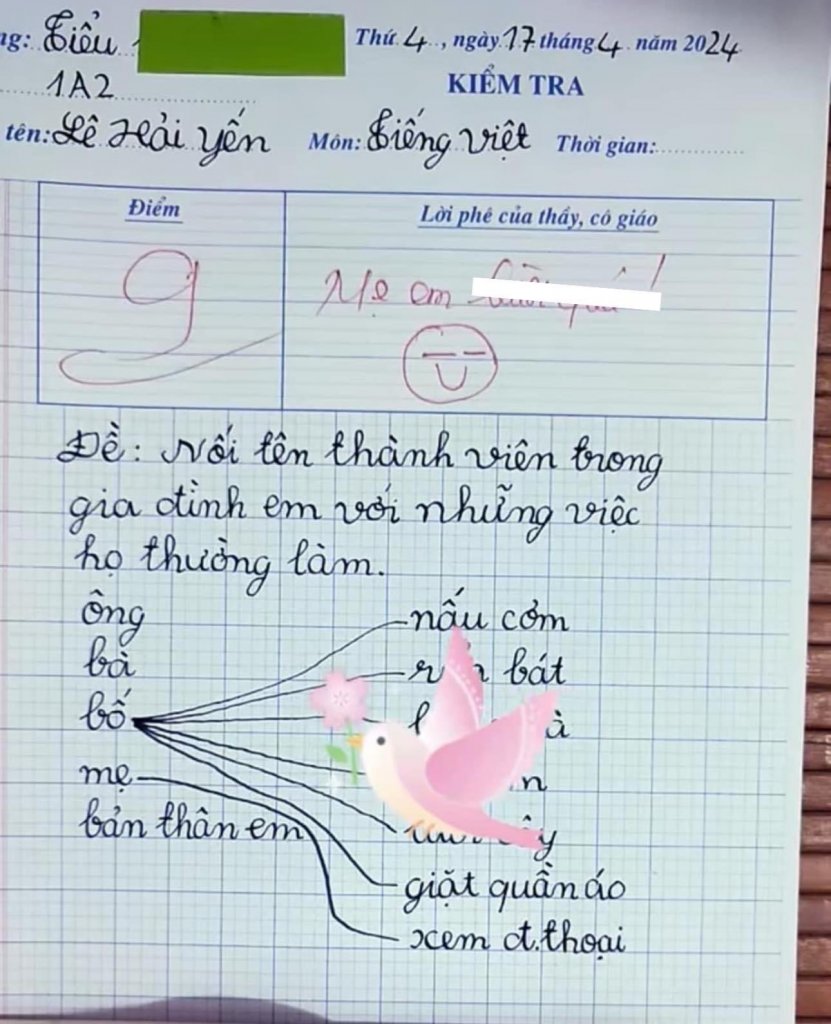 ng: Tiểu
Thứ 4, ngày 17 tháng 4 năm 2024
1A2
KIỂM TRA
tên: Lê Hải Yến Môn: Tiếng Việt Thời gian:
Điểm
Lời phê của thầy, cô giáo
9
Mẹ em
Đề: Nối tên thành viên trong
gia đình em với những việc
họ thường làm.
ông
nấu cơm
bà
bát
bố
mẹ
bản thân em
giặt quần áo
xem đ.thoại